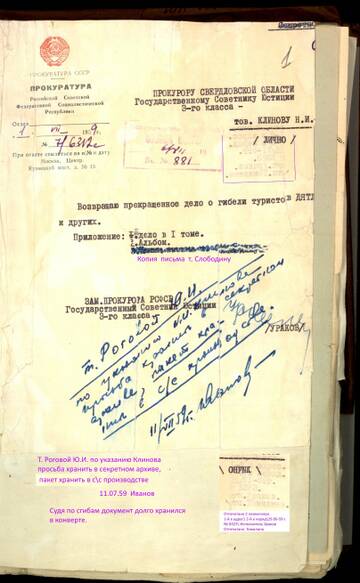 Секретно
1
ПРОКУРАТУРА СССР
ПРОКУРАТУРА
Российской Советской
Федеративной Социалистической
Республики
Отдел
1 VII 1959
№ 3/6319с
При ответе ссылаться на № и дату
Москва, Центр,
Кузнецкий мост, д. № 13
ПРОКУРОРУ СВЕРДЛОВСКОЙ ОБЛАСТИ
Государственному Советнику Юстиции
3-го класса -
тов. КЛИНОВУ Н.И.
/ ЛИЧНО /
Вх. № 881
Возвращаю прекращенное дело о гибели туристов ДЯТЛ
и других.
Приложение: 1. дело в I томе.
2. Альбом.
Копия письма т. Слободину
ЗАМ.ПРОКУРОРА РСФСР
Государственный Советник Юстиции
3-го класса
/УРАКОВ/
т. Роговой Ю.И.
по указанию Н.И. Клинова
просьба хранить в секретном
архиве, пакет хра-
нить в с/с производстве
11/VII 59г. Иванов
Т. Роговой Ю.И. по указанию Клинова
просьба хранить в секретном архиве,
пакет хранить в с\с производстве
11.07.59 Иванов
Судя по сгибам документ долго хранился
в конверте.
Отпечатано 2 экземпляра